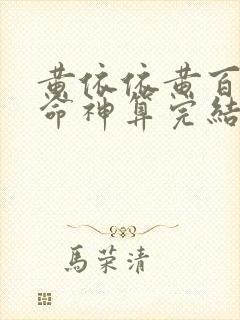 黄依依黄百
命神算完結
馬荣清